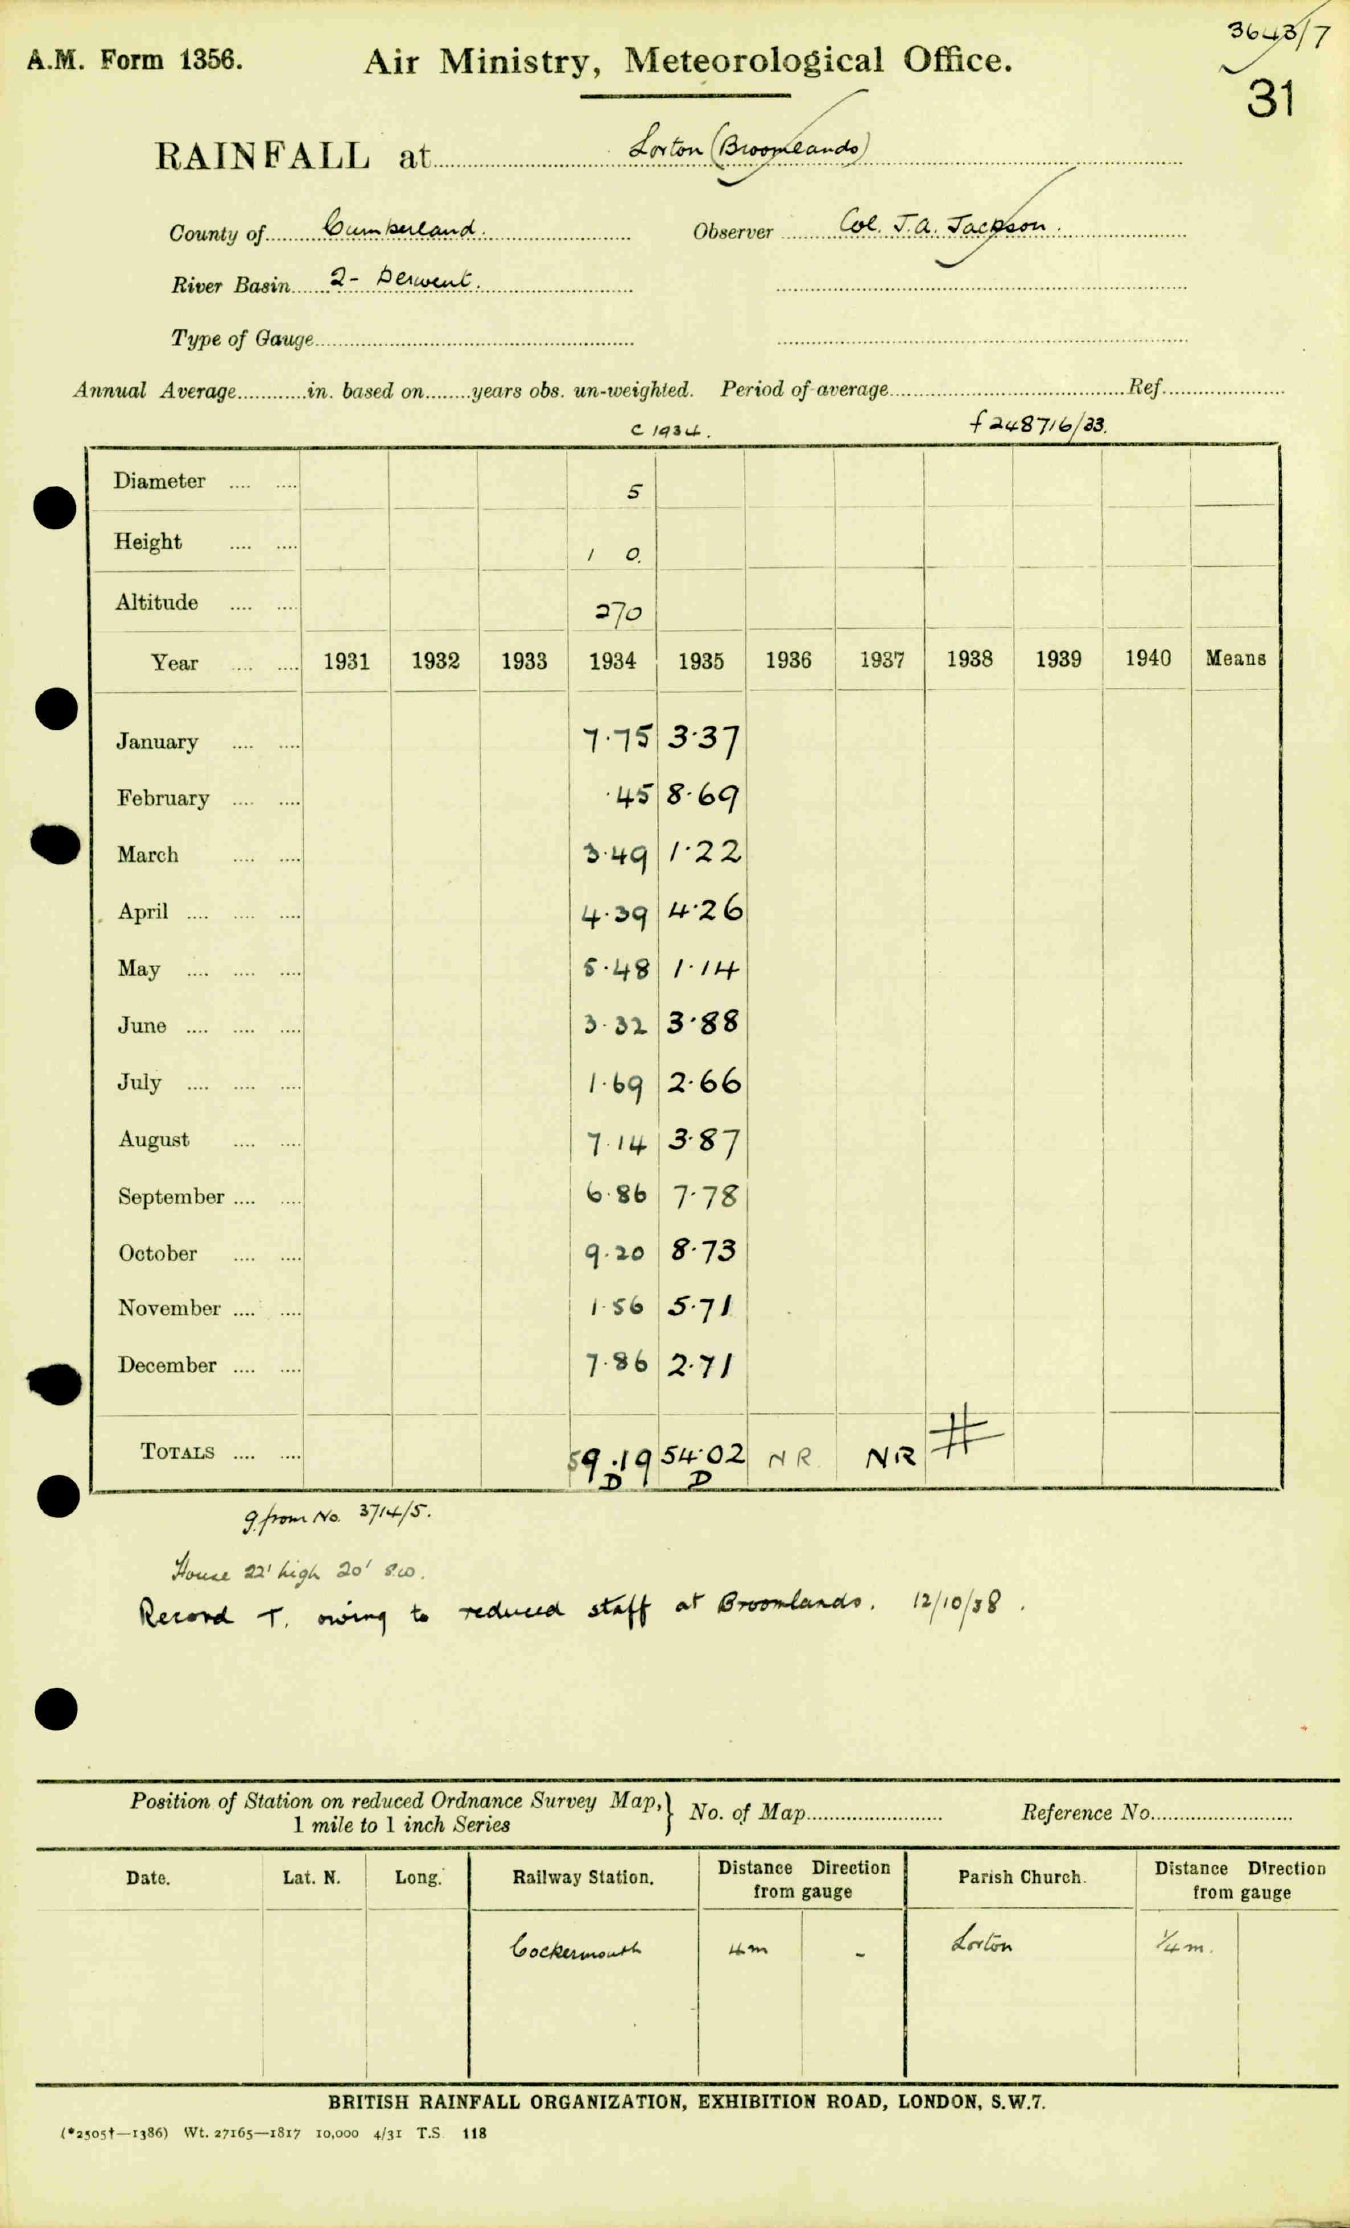 3643/7
A.M. Form 1356.
Air Ministry, Meteorological Office.
31
RAINFALL at Lorton (Broomlands)
County of Cumberland. Observer Col. J.A. Jackson.
River Basin 2- Derwent.
Type of Gauge
Annual Average in. based on years obs. un-weighted. Period of average Ref.
c 1934. f248716/33.
Diameter 5
Height 1 0.
Altitude 270
Year 1931 1932 1933 1934 1935 1936 1937 1938 1939 1940 Means
January 7.75 3.37
February .45 8.69
March 3.49 1.22
April 4.39 4.26
May 5.48 1.14
June 3.32 3.88
July 1.69 2.66
August 7.14 3.87
September 6.86 7.78
October 9.20 8.73
November 1.56 5.71
December 7.86 2.71
TOTALS 59.19 54.02 NR. NR #
D D
g. from No. 3714/5.
House 22' high 20' SW.
Record T. owing to reduced staff at Broomlands. 12/10/38.
Position of Station on reduced Ordnance Survey Map,} No. of Map Reference No.
1 mile to 1 inch Series
Date. Lat. N. Long. Railway Station. Distance Direction from gauge Parish Church. Distance Direction from gauge
Cockermouth 4m - Lorton 1/4 m.
BRITISH RAINFALL ORGANIZATION, EXHIBITION ROAD, LONDON, S.W.7.
(*2505†—1386) Wt. 27165—1817 10,000 4/31 T.S. 118